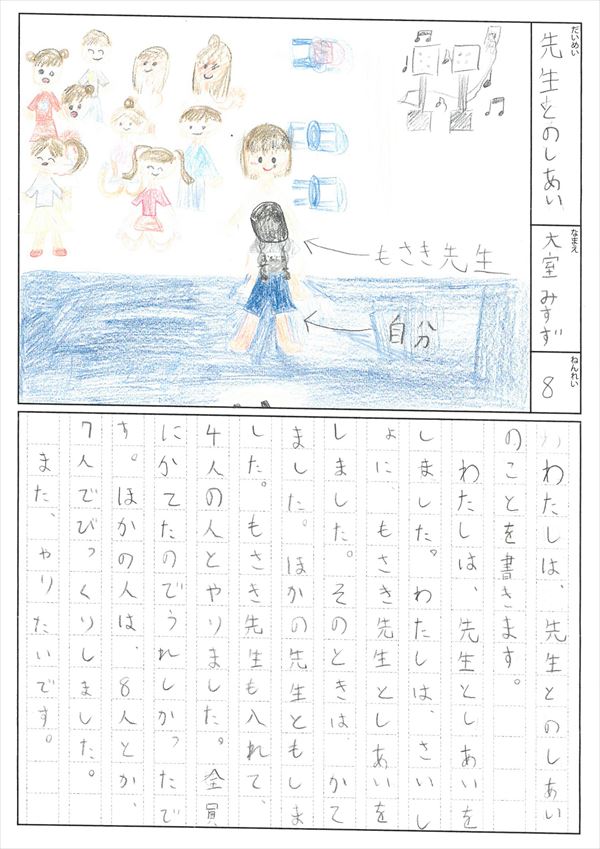 だいめい
先生とのしあい
なまえ
大室みすず
ねんれい
8
もさき先生
自分
わたしは、先生とのしあい
のことを書きます。
わたしは、先生としあいを
しました。わたしは、さいし
ょに、もさき先生としあいを
しました。そのときは、かて
ました。ほかの先生ともしま
した。もさき先生も入れて、
4人の人とやりました。全員
にかてたのでうれしかったで
す。ほかの人は、8人とか、
7人でびっくりしました。
また、やりたいです。